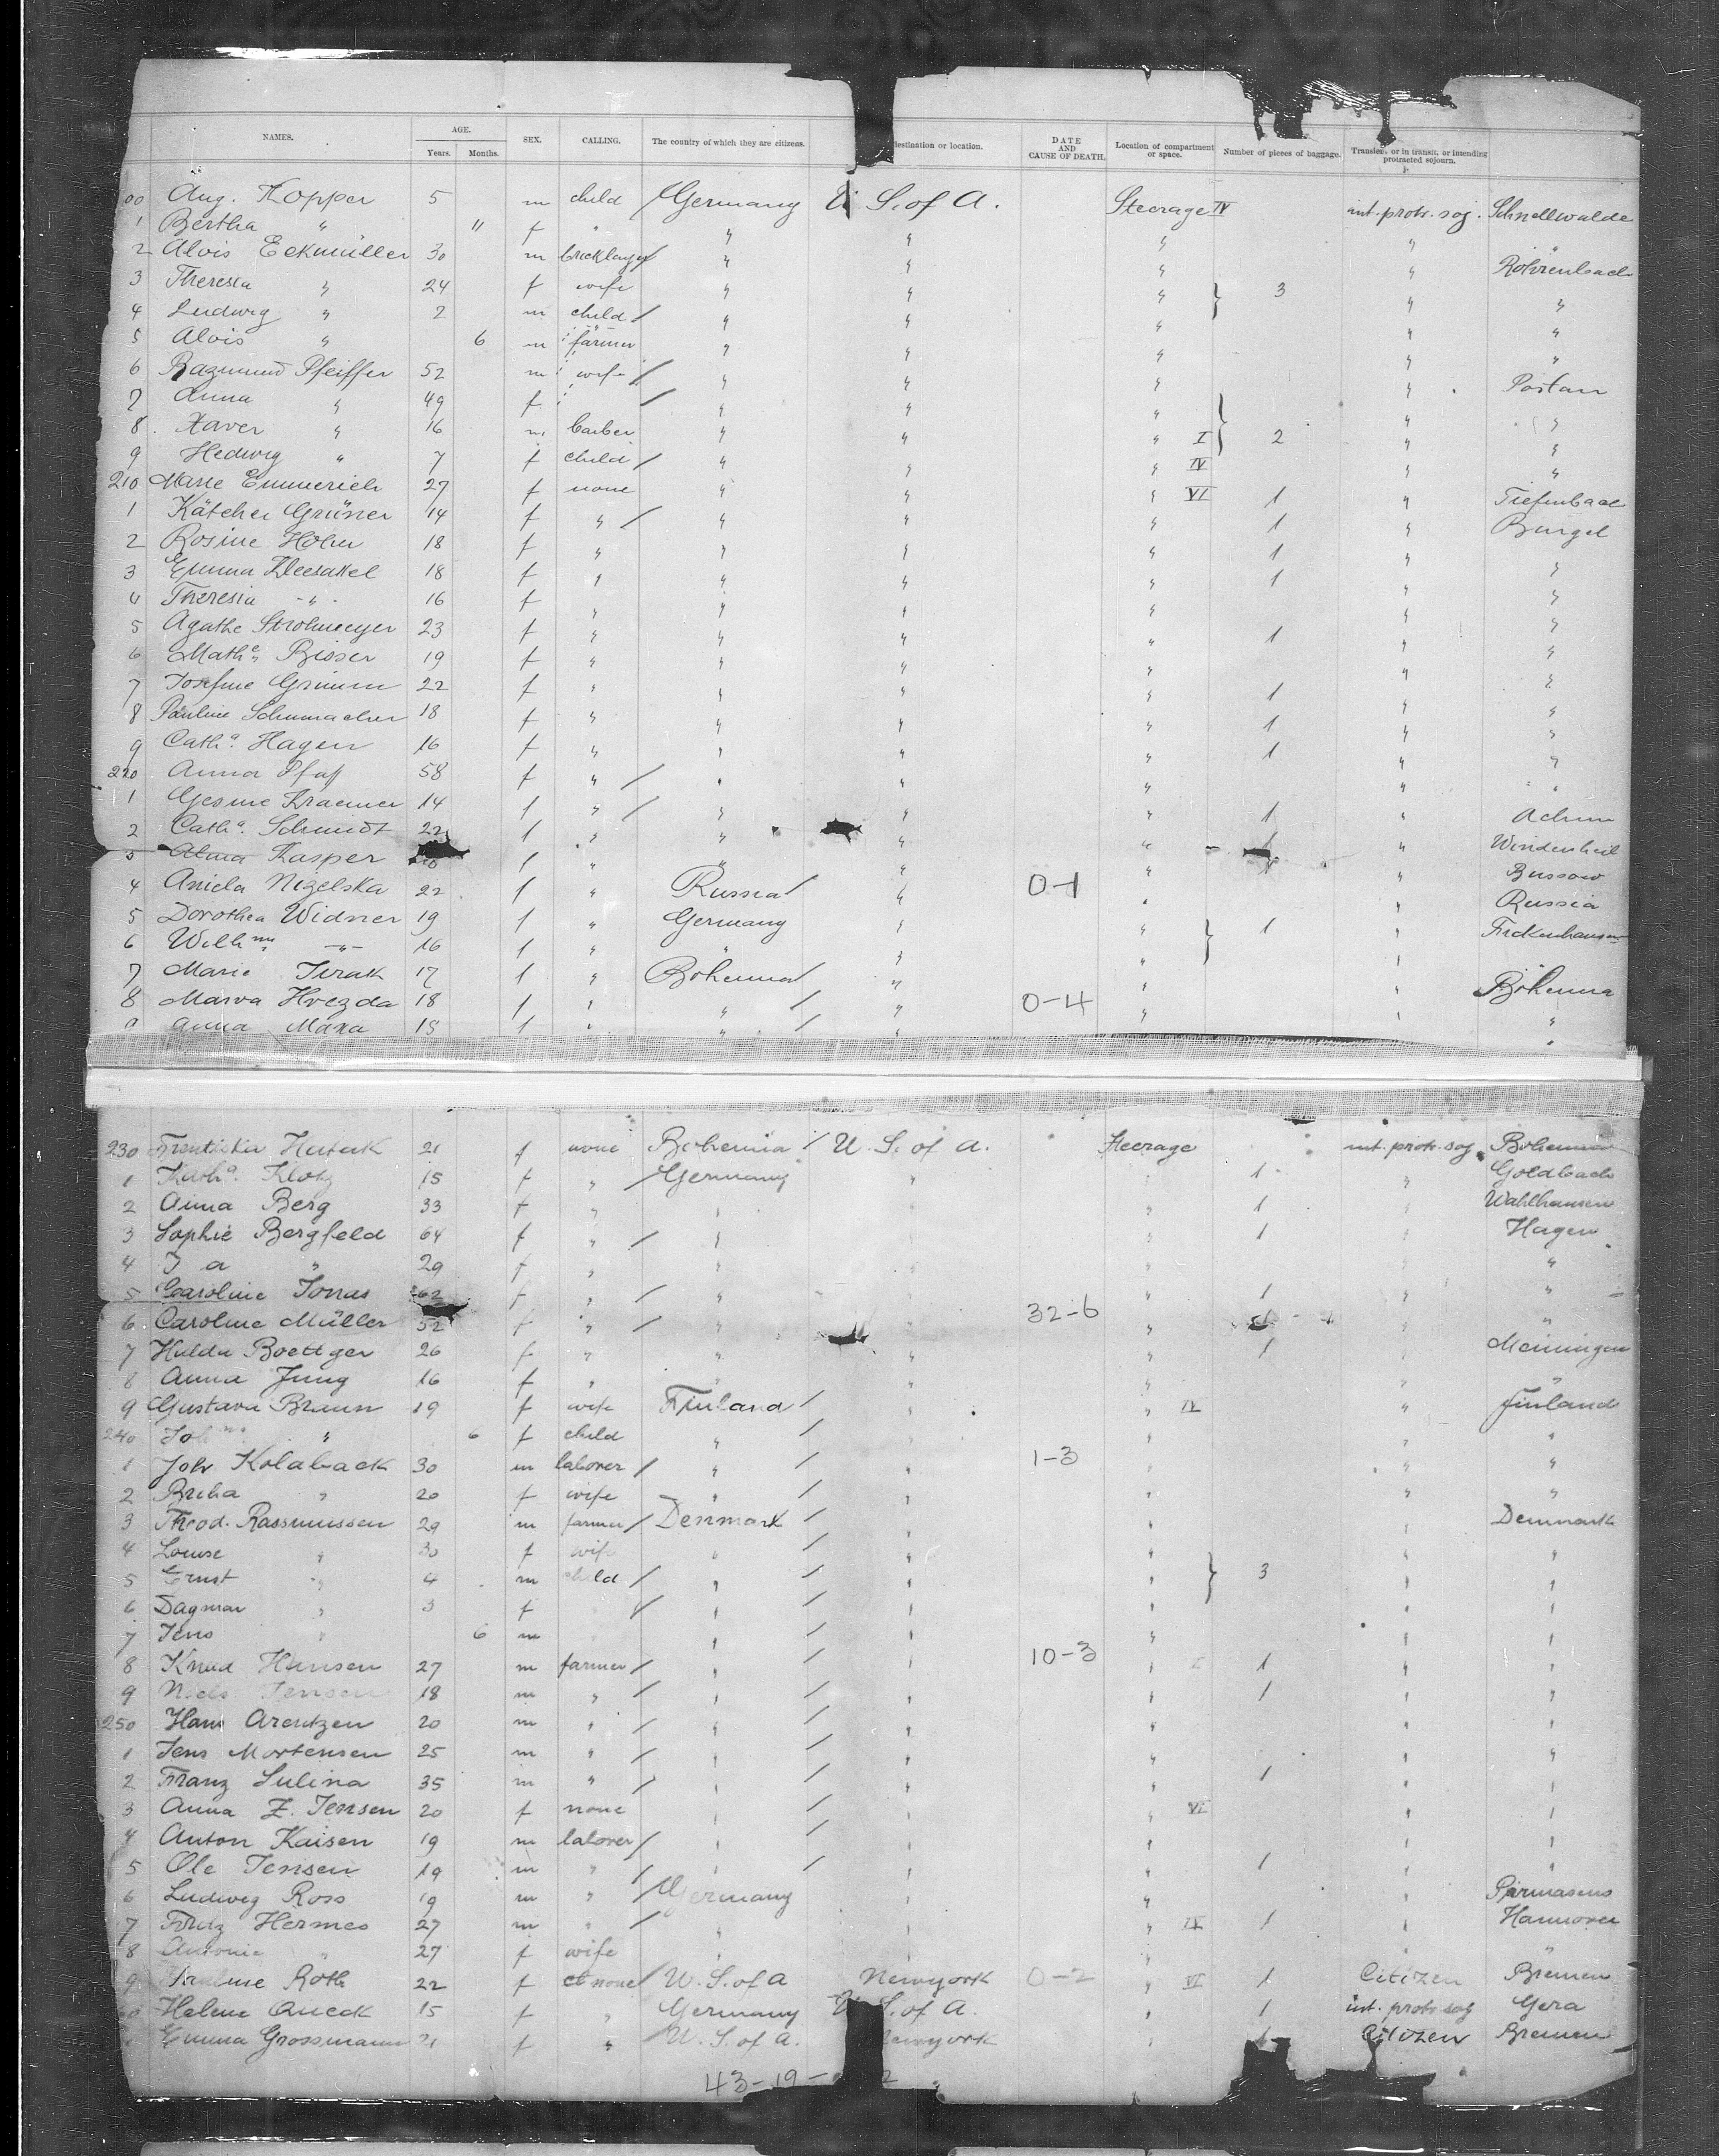 NAMES. AGE. Years. Months. SEX. CALLING. The country of which they are citizens. destination or location. DATE AND CAUSE OF DEATH. Location of compartment or space. Number of pieces of baggage. Transient, or in transit, or intending protracted sojourn.
00 Aug. Kopper 5 m child Germany U. S. of A. Steerage IV int. protr. soj. Schnellwalde
1 Bertha " 11 f " " " " "
2 Alois Eckmüller 30 m bricklayer " " " " Röhrenbach
3 Theresia " 24 f wife " " " 3 " "
4 Ludwig " 2 m child " " " " "
5 Alois " 6 m farmer " " " " "
6 Pfeiffer 52 m wife " " " "
7 Anna " 49 f " " " " "
8 Xaver " 16 m barber " " " I 2 " "
9 Hedwig " 7 f child " " " IV " "
210 Marie Emmerich 27 f none " " " VI 1 " Tiefenbach
1 Kätchen Grüner 14 f " " " " 1 " Burgel
2 Rosine 18 f " " " " 1 " "
3 Emma 18 f " " " " 1 " "
4 Theresia " 16 f " " " " " "
5 Agathe Strohmeyer 23 f " " " " 1 " "
6 Bisser 19 f " " " " " "
7 Josefine Grimm 22 f " " " " 1 " "
8 Pauline Schumacher 18 f " " " " 1 " "
9 Cath. Hagen 16 f " " " " 1 " "
220 Anna Pfaff 58 f " " " " " "
1 Gesine Kraemer 14 f " " " " 1 " Achim
2 Cath. Schmidt 22 f " " " " 1 "
3 Alma Kasper f " " " " 1 " Bussow
4 Aniela Nizelska 22 f " Russia " 0-1 " " Russia
5 Dorothea Widner 19 f " Germany " " 1 " Frickenhausen
6 Wilhne " 16 f " " " " "
7 Marie 17 f " Bohemia " " " Bohemia
8 Hvezda 18 f " " " 0-4 " " "
9 Anna Maxa 18 f " " " "
230 21 f none Bohemia U. S. of A. Steerage int. protr. soj. Bohemia
1 Kath. Klotz 15 f " Germany " " 1 " Goldbach
2 Anna Berg 33 f " " " 1 " Wahlhausen
3 Sophie Bergfeld 64 f " " " 1 " Hagen
4 " 29 f " " " " " "
5 Caroline Jonas 62 f " " " " 1 " "
6 Caroline Müller 52 f " " " 32-6 " " "
7 Hulda Boettger 26 f " " " " 1 " Meiningen
8 Anna Jung 16 f " " " " " "
9 Gustava Braun 19 f wife Finland " " IV " Finland
240 " 6 f child " " " " "
1 Joh Kolaback 30 m laborer " " 1-3 " " "
2 Briha " 20 f wife " " " " "
3 Theod. Rassmussen 29 m farmer Denmark " " " Denmark
4 Louise " 30 f wife " " " " "
5 Ernst " 4 m child " " " 3 " "
6 Dagmar " 3 f " " " " "
7 Jens " 6 m " " " " "
8 Knud Hansen 27 m farmer " " 10-3 " I 1 " "
9 Niels Jensen 18 m " " " " 1 " "
250 Hans Arentzen 20 m " " " " " "
1 Jens Mortensen 25 m " " " " " "
2 Franz Sulina 35 m " " " " 1 " "
3 Anna E. Jensen 20 f none " " " VI " "
4 Anton Kaisen 19 m laborer " " " " "
5 Ole Jensen 19 m " " " " 1 " "
6 Ludwig Ross 19 m " Germany " " " Pirmasens
7 Fritz Hermes 27 m " " " " IV 1 " Hannover
8 Antonie " 27 f wife " " " " "
9 Pauline Roth 22 f none U. S. of A Newyork 0-2 " VI 1 Citizen Bremen
60 Helene Queck 15 f " Germany U. S. of A. " 1 int. protr. soj Gera
Emma Grossmann 21 f " U. S. of A. Newyork " 1 Citizen Bremen
43-19-